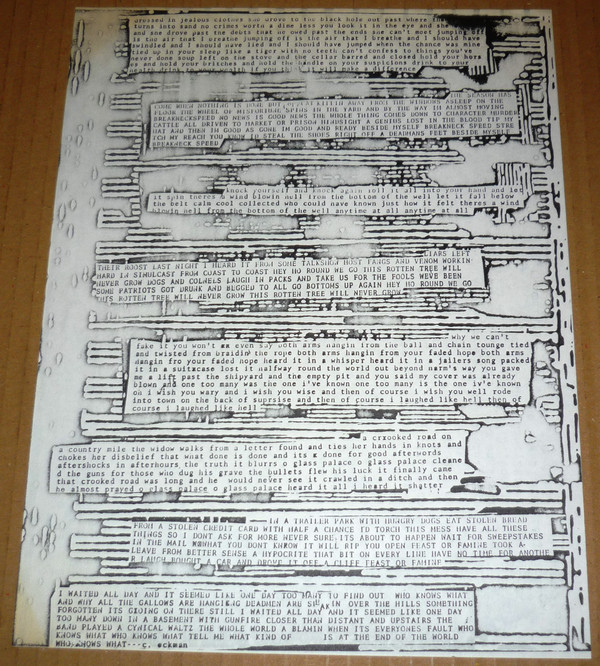 dressed in jealous clothes she drove to the black hole out past where the
turns into sand no crimes worth a dime less you look it in the eye and she
and she drove past the debts that he owed past the ends she can't most jumping off
is the air that I breathe jumping off is the air that I breathe and I should have
swindled and I should have lied and I should have jumped when the chance was mine
tied up in your sleep like a tiger with no teeth can't confess to things you've
never done soup left on the stove and the cellar barred and closed hold your
and hold your britches and hold the candle on your suspicions drink to your
THE SEASON HAS
COME WHEN NOTHING IS DONE BUT REPEAT KILLED AWAY FROM THE WINDOWS ASLEEP ON THE
FLOOR THE WHEEL OF MISFORTUNE SPINS IN THE YARD AND BY THE HEAVENS ALMOST MOVING
BREAKNECKSPEED NO NEWS IS GOOD NEWS THE WHOLE THING COMES DOWN TO CHARACTER MURDER
CATTLE ALL DRIVEN TO MARKET OR PRISON MIDNIGHT A GENIUS LOST IN THE BLOOD TIP MY
HAT AND THEN IM GOOD AS GONE IM GOOD AND READY BESIDE MYSELF BREAKNECK SPEED STRE
TCH MY REACH YOU KNOW TO STEAL THE SHOES RIGHT OFF A DEADMANS FEET BESIDE MYSELF
BREAKNECK SPEED
knock yourself and knock again roll it all into your hand and let
it spin theres a wind blowin hell from the bottom of the well let it fall below
the belt calm cool collected who could have known just how it felt theres a wind
blowin hell from the bottom of the well anytime at all anytime at all
LIARS LEFT
THEIR ROOST LAST NIGHT I HEARD IT FROM SOME TALKSHOW HOST FANGS AND VENOM WORKIN
HARD IN SIMULCAST FROM COAST TO COAST HEY HO ROUND WE GO THIS ROTTEN TREE WILL
NEVER GROW DOGS AND COLNELS LAUGH IN PACKS AND TAKE US FOR THE FOOLS WEVE BEEN
SOME PATRIOTS GOT DRUNK AND BLOGED TO ALL GO BOTTOMS UP AGAIN HEY HO ROUND WE GO
THIS ROTTEN TREE WILL NEVER GROW THIS ROTTEN TREE WILL NEVER GROW
why we can't
fake it you won't even say both arms hangin from the ball and chain tounge tied
and twisted from braidin the rope both arms hangin from your faded hope both arms
hangin fro your faded hope heard it in a whisper heard it in a jailers song packed
it in a suitxcase lost it halfway round the world out beyond harm's way you gave
me a lift past the shipyard and the empty pit and you said my cover was already
blown and one too many was the one i've known one too many is the one iv'e known
oh i wish you wary and i wish you wise and then of course i wish you well rode
into town on the back of surprise and then of course i laughed like hell then of
course i laughed like hell
a crxooked road on
a country mile the widow walks from a letter found and ties her hands in knots and
chokes her disbelief that whats done is done and its x done for good afterwords
aftershocks in afterhours the truth it blurrs o glass palace o glass palace cleane
d the guns for those who dug his grave the bullets flew his luck it finally came
that crooked road was long and he would never see it crawled in a ditch and then
he almost prayed o glass palace o glass palace heard it all i heard it shatter
IN A TRAILER PARK WITH HUNGRY DOGS EAT STOLEN BREAD
FROM A STOLEN CREDIT CARD WITH HALF A CHANCE ID TORCH THIS MESS HAVE ALL THESE
THINGS SO I DONT ASK FOR MORE NEVER SURE ITS ABOUT TO HAPPEN WAIT FOR SWEEPSTAKES
IN THE MAIL WHAT YOU DONT KNOW IT WILL RIP YOU OPEN FEAST OR FAMINE TOOK A
LEAVE FROM BETTER SENSE A HYPOCRITE THAT BIT ON EVERY LINE HAVE NO TIME FOR ANOTHE
R LAUGH BOUGHT A CAR AND DROVE IT OFF A CLIFF FEAST OR FAMINE
I WAITED ALL DAY AND IT SEEMED LIKE ONE DAY TOO MANY TO FIND OUT WHO KNOWS WHAT
AND WHY ALL THE GALLOWS ARE HANGING DEADMEN ARE SPEAKIN OVER THE HILLS SOMETHING
FORGOTTEN ITS GOING ON THERE STILL I WAITED ALL DAY AND IT SEEMED LIKE ONE DAY
TOO MANY DOWN IN A BASEMENT WITH GUNFIRE CLOSER THAN DISTANT AND UPSTAIRS THE
BAND PLAYED A CYNICAL WALTZ THE WHOLE WORLD A BLAMIN WHEN ITS EVERYONES FAULT WHO
KNOWS WHAT WHO KNOWS WHAT TELL ME WHAT KIND OF IS AT THE END OF THE WORLD
WHO KNOWS WHAT---c. eckman